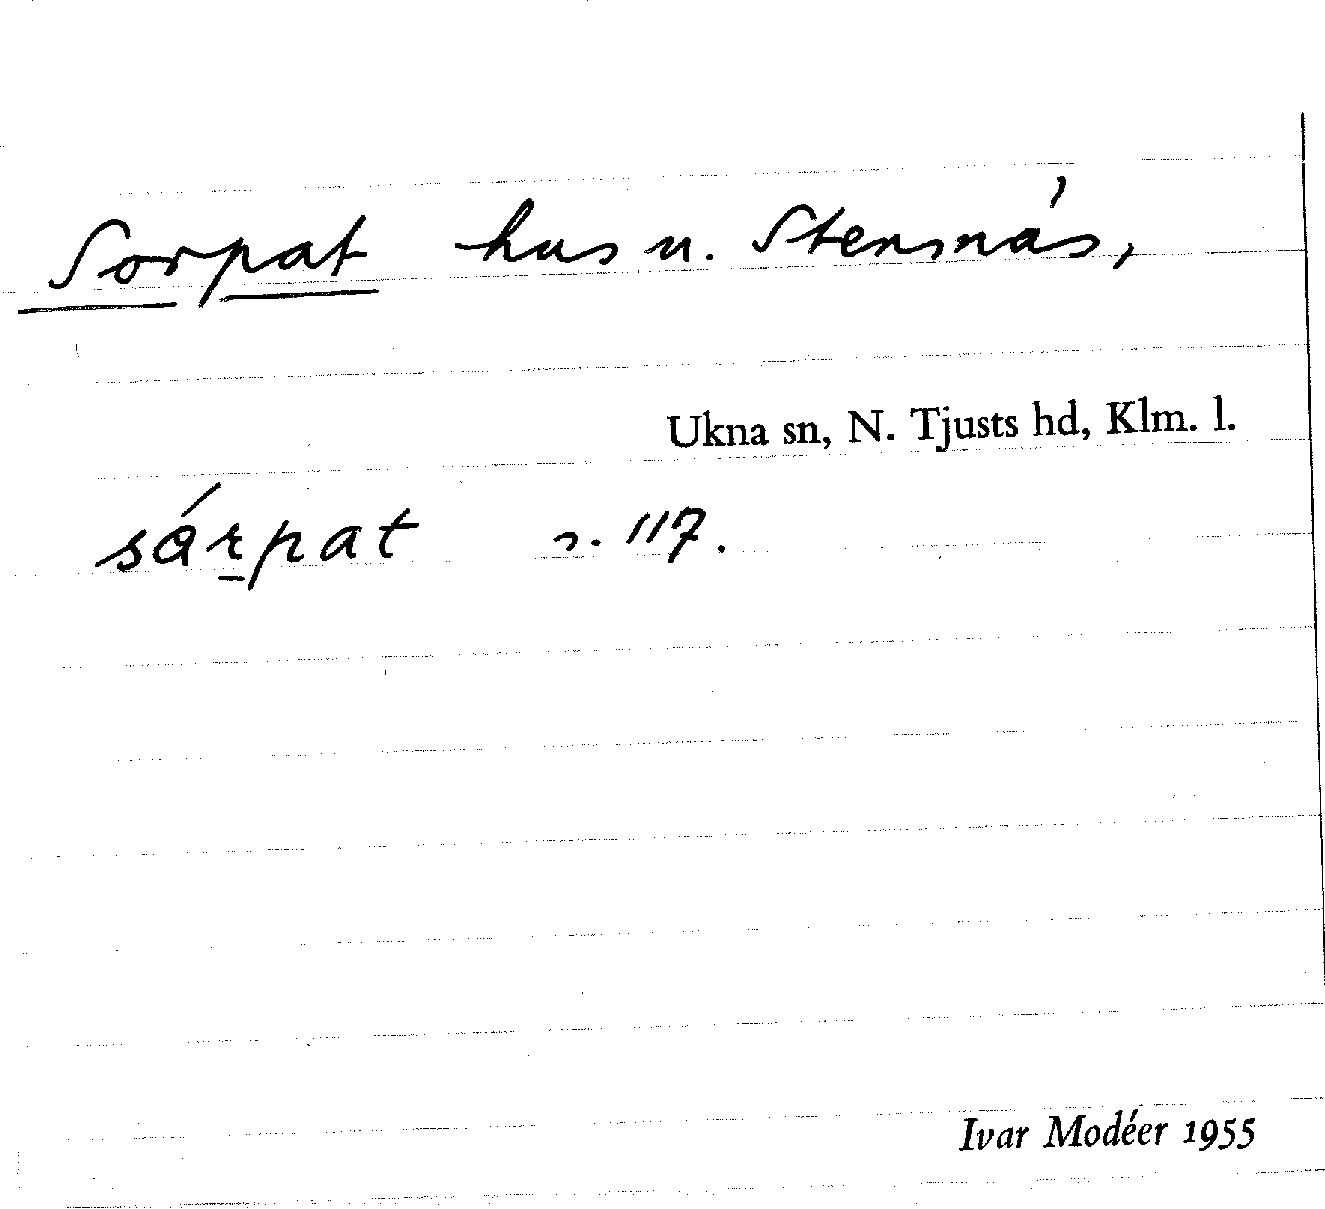 Sorpat hus u. Stensnäs,
Ukna sn, N. Tjusts hd, Klm. l.
sárpat s. 117.
Ivar Modéer 1955